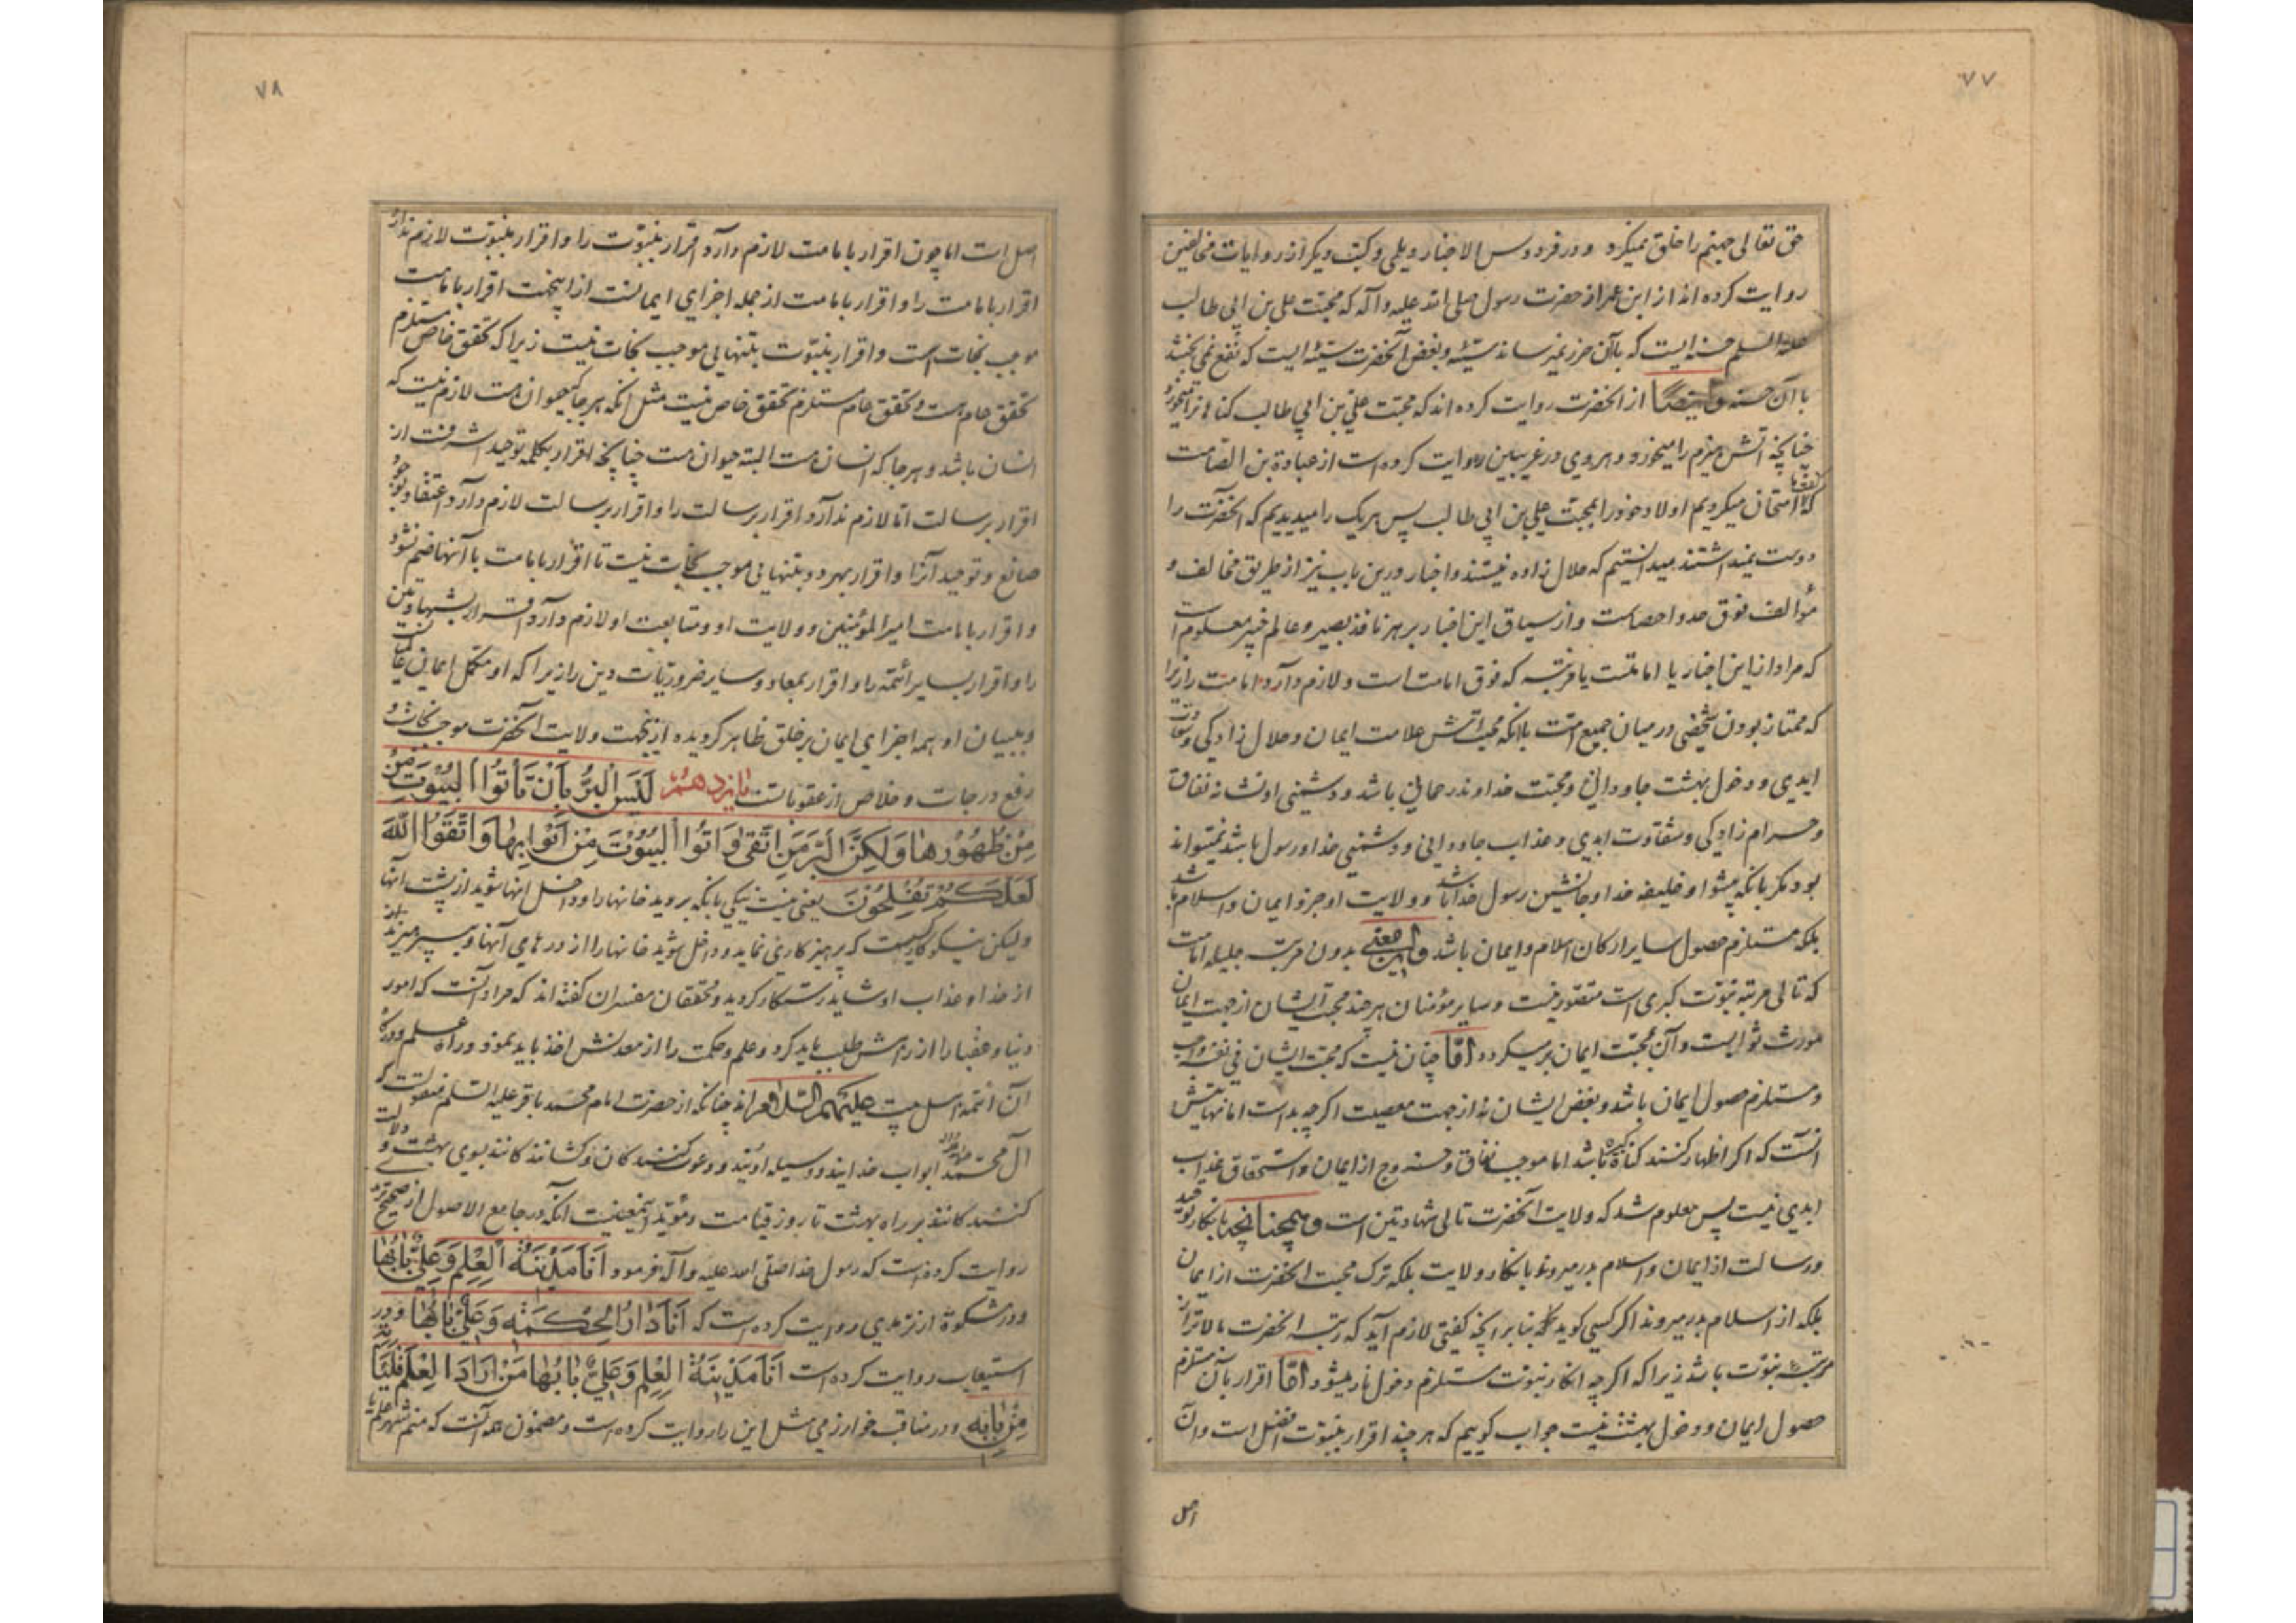 ۷۷
حق تعالی جهنم را خلق نمیکرد و در فردوس الاخبار دیلمی و کتب دیگر از روایات مخالفین
روایت کرده اند از ابن عمر از حضرت رسول صلی الله علیه و آله که محبت علی بن ابی طالب
علیه السلم حسنه ایست که باآن ضرر نمیرساند سیئه و بغض آنحضرت سیئه ایست که نفع نمی بخشد
با آن حسنه و ایضا از انحضرت روایت کرده اند که محبت علی بن ابی طالب کناهانرا میخورد
چنانچه اتش هیزم را میخورد و هروی در غریبین روایت کرده است از عبادة بن الصامت
که ما امتحان میکردیم اولاد خود را بمحبت علی بن ابی طالب پس هریک را میدیدیم که انحضرت را
دوست نمیداشتند میدانستیم که حلال زاده نیستند و اخبار درین باب نیز از طریق مخالف و
مؤالف فوق حد و احصاست و از سیاق این اخبار بر هر ناقد بصیر و عالم خبیر معلوم است
که مراد از این اخبار یا امامتست یا مرتبه که فوق امامت است و لازم دارد امامت را زیرا
که ممتاز بودن شخصی در میان جمیع امت بانکه محبتش علامت ایمان و حلال زادکی و سعادت
ابدی و دخول بهشت جاودانی و محبت خداوند رحمانی باشد و دشمنی او نشانه نفاق
و حرام زادکی و شقاوت ابدی و عذاب جاودانی و دشمنی خدا و رسول باشد نمیتواند
بود مکر بانکه پیشوا و خلیفه خدا و جانشین رسول خدا باشد و ولایت او جزو ایمان و اسلام باشد
بلکه مستلزم حصول سایر ارکان اسلام و ایمان باشد و این معنی بدون مرتبه جلیله امامت
که تالی مرتبه نبوت کبری است متصور نیست و سایر مؤمنان هر چند محبت ایشان از جهت ایمان
مورث ثوابست و آن محبت ایمان بر میکردد اما چنان نیست که محبت ایشان فی نفسه واجب
و مستلزم حصول ایمان باشد و بغض ایشان نه از جهت معصیت اکر چه بد است اما نهایتش
انست که اکر اظهار کنند کناه کبیره باشد اما موجب نفاق و خروج از ایمان و استحقاق عذاب
ابدی نیست پس معلوم شد که ولایت آنحضرت تالی شهادتین است و همچنانچه بانکار توحید
و رسالت از ایمان و اسلام بدر میرود بانکار ولایت بلکه ترک محبت انحضرت از ایمان
بلکه از اسلام بدر میرود اکر کسی کوید که بنا بر انچه کفتی لازم آید که رتبه انحضرت بالاتر از
مرتبه نبوت باشد زیرا که اکر چه انکار نبوت مستلزم دخول نار میشود اما اقرار بآن مستلزم
حصول ایمان و دخول بهشت نیست جواب کوییم که هر چند اقرار بنبوت افضل است و آن
اصل
۷۸
اصل است اما چون اقرار بامامت لازم دارد اقرار بنبوت را و اقرار بنبوت لازم ندارد
اقرار بامامت را و اقرار بامامت از جمله اجزای ایمانست از اینجهت اقرار بامامت
موجب نجات است و اقرار بنبوت بتنهایی موجب نجات نیست زیرا که تحقق خاص مستلزم
تحقق عام است و تحقق عام مستلزم تحقق خاص نیست مثل انکه هر جا که حیوان هست لازم نیست که
انسان باشد و هر جا که انسان هست البته حیوان هست چنانچه اقرار بکلمه توحید اشرفست از
اقرار برسالت اما لازم ندارد اقرار برسالت را و اقرار برسالت لازم دارد اعتقاد بوجود
صانع و توحید آنرا و اقرار بهر دو بتنهایی موجب نجات نیست تا اقرار بامامت با آنها ضم نشود
و اقرار بامامت امیر المؤمنین و ولایت او و متابعت او لازم دارد اقرار بشهادتین
را و اقرار بسایر ائمه را و اقرار بمعاد و سایر ضروریات دین را زیرا که او مکمل ایمان
و ببیان او همه اجزای ایمان بر خلق ظاهر کردیده ازینجهت ولایت انحضرت موجب نجات و
رفع درجات و خلاص از عقوباتست پانزدهم لَیْسَ الْبِرُّ بِاَنْ تَأْتُوا الْبُیُوْتَ
مِنْ ظُهُوْرِهَا وَلَکِنَّ الْبِرَّ مَنِ اتَّقَی وَاتُوا الْبُیُوْتَ مِنْ اَبْوَابِهَا وَاتَّقُوا اللّٰهَ
لَعَلَّکُمْ تُفْلِحُوْنَ یعنی نیست نیکی بانکه بروید خانها را و داخل انها شوید از پشت آنها
ولیکن نیکوکار کسیست که پرهیزکاری نماید و داخل شوید خانها را از درهای آنها و بپرهیزید از
از خدا و عذاب او شاید رستکار کردید و محققان مفسران کفته اند که مراد آنست که امور
دنیا و عقبا را از راهش طلب باید کرد و علم و حکمت را از معدنش اخذ باید نمود و راه علم و درگاه
آن ائمه اهل بیت علیهم السلام اند چنانکه از حضرت امام محمد باقر علیه السلم منقولست که
آل محمد ابواب خدایند و وسیله اویند و دعوت کنندکان و کشانندکانند بسوی بهشت و دلالت
کنندکانند بر راه بهشت تا روز قیامت و مؤید اینمعنیست آنکه در جامع الاصول از صحیح ترمذی
روایت کرده است که رسول خدا صلی الله علیه و آله فرمود اَنَا مَدِیْنَةُ الْعِلْمِ وَعَلِیٌّ بَابُهَا
و در مشکوة از ترمذی روایت کرده است که اَنَا دَارُ الْحِکْمَةِ وَعَلِیٌّ بَابُهَا و در
استیعاب روایت کرده است اَنَا مَدِیْنَةُ الْعِلْمِ وَعَلِیٌّ بَابُهَا مَنْ اَرَادَ الْعِلْمَ فَلْیَأْتِهِ
مِنْ بَابِهِ و در مناقب خوارزمی مثل این را روایت کرده است و مضمون همه آنست که منم شهر علم